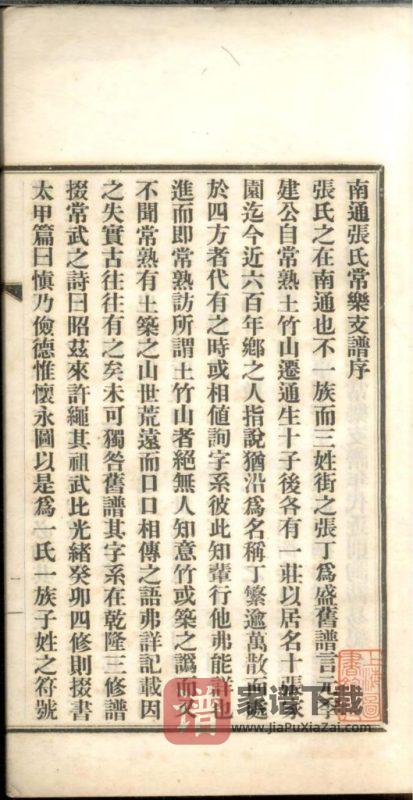 南通張氏常樂支譜序
張氏之在南通也不一族而三姓街之張丁爲盛舊譜言元季
建公自常熟土竹山遷通生十子後各有一莊以居名十張家
園迄今近六百年鄉之人指說猶沿爲名稱丁繁逾萬散而處
於四方者代有之時或相値詢字系彼此知輩行他弗能詳也
進而即常熟訪所謂土竹山者絕無人知意竹或築之譌而又
不聞常熟有土築之山世荒遠而口口相傳之語弗詳記載因
之失實古往往有之矣未可獨咎舊譜其字系在乾隆三修譜
掇常武之詩曰昭茲來許繩其祖武比光緒癸卯四修則掇書
太甲篇曰愼乃儉德惟懷永圖以是爲一氏一族子姓之符號
譜
家谱下载
www.JiaPuXiaZai.com